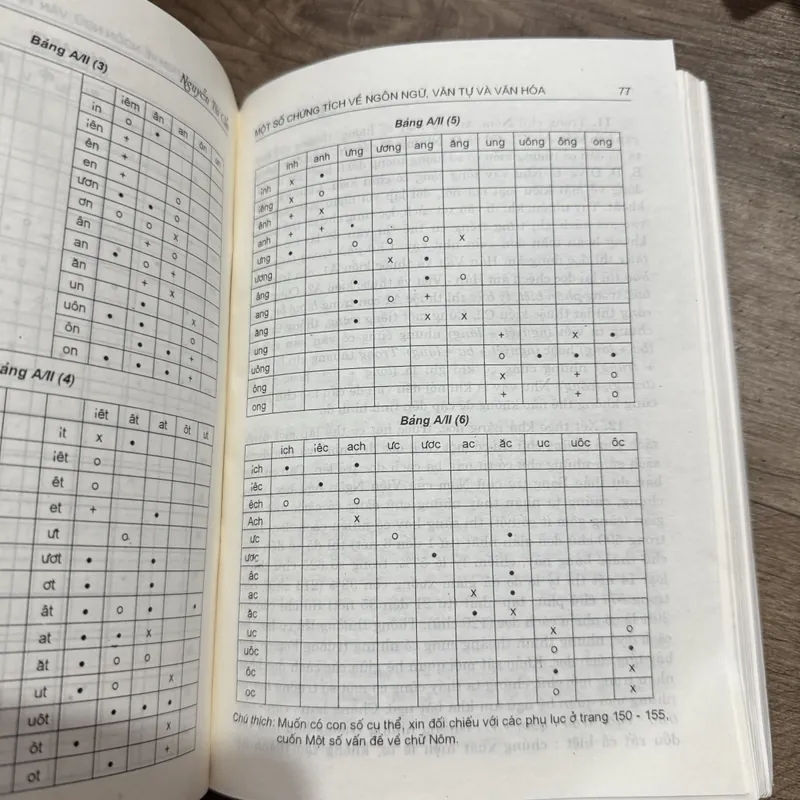 Bảng A/II (3)
Nguyễn Tài Cẩn
iêm ân an ôn on
in o •
iên +
ên +
en + o
ươn • o
ơn o o x
ân + o
an • o +
ăn + x
un •
uôn • • x
ôn • • o +
on • • + +
Bảng A/II (4)
iêt ât at ôt ut
it x •
iêt o
êt o
et + •
ưt o
ươt • •
ơt • •
ât • o • •
at • x
ăt • o o
ut • o x
uôt • • •
ôt • x
ot • +
MỘT SỐ CHỨNG TÍCH VỀ NGÔN NGỮ, VĂN TỰ VÀ VĂN HÓA 77
Bảng A/II (5)
inh anh ưng ương ang ăng ung uông ông ong
inh x •
iêng x o
ênh + x
anh + + •
ưng • o o o x
ương x •
âng • • o
ang • o +
ăng • x x
ung + x •
uông o • • •
ông x + o
ong + + o
Bảng A/II (6)
ich iêc ach ưc ươc ac ăc uc uôc ôc
ich • •
iêc •
êch o o
Ach x
ưc o •
ươc •
âc •
ac x •
ăc • x
uc x o
uôc o •
ôc • x
oc o x
Chú thích: Muốn có con số cụ thể, xin đối chiếu với các phụ lục ở trang 150 - 155,
cuốn Một số vấn đề về chữ Nôm.